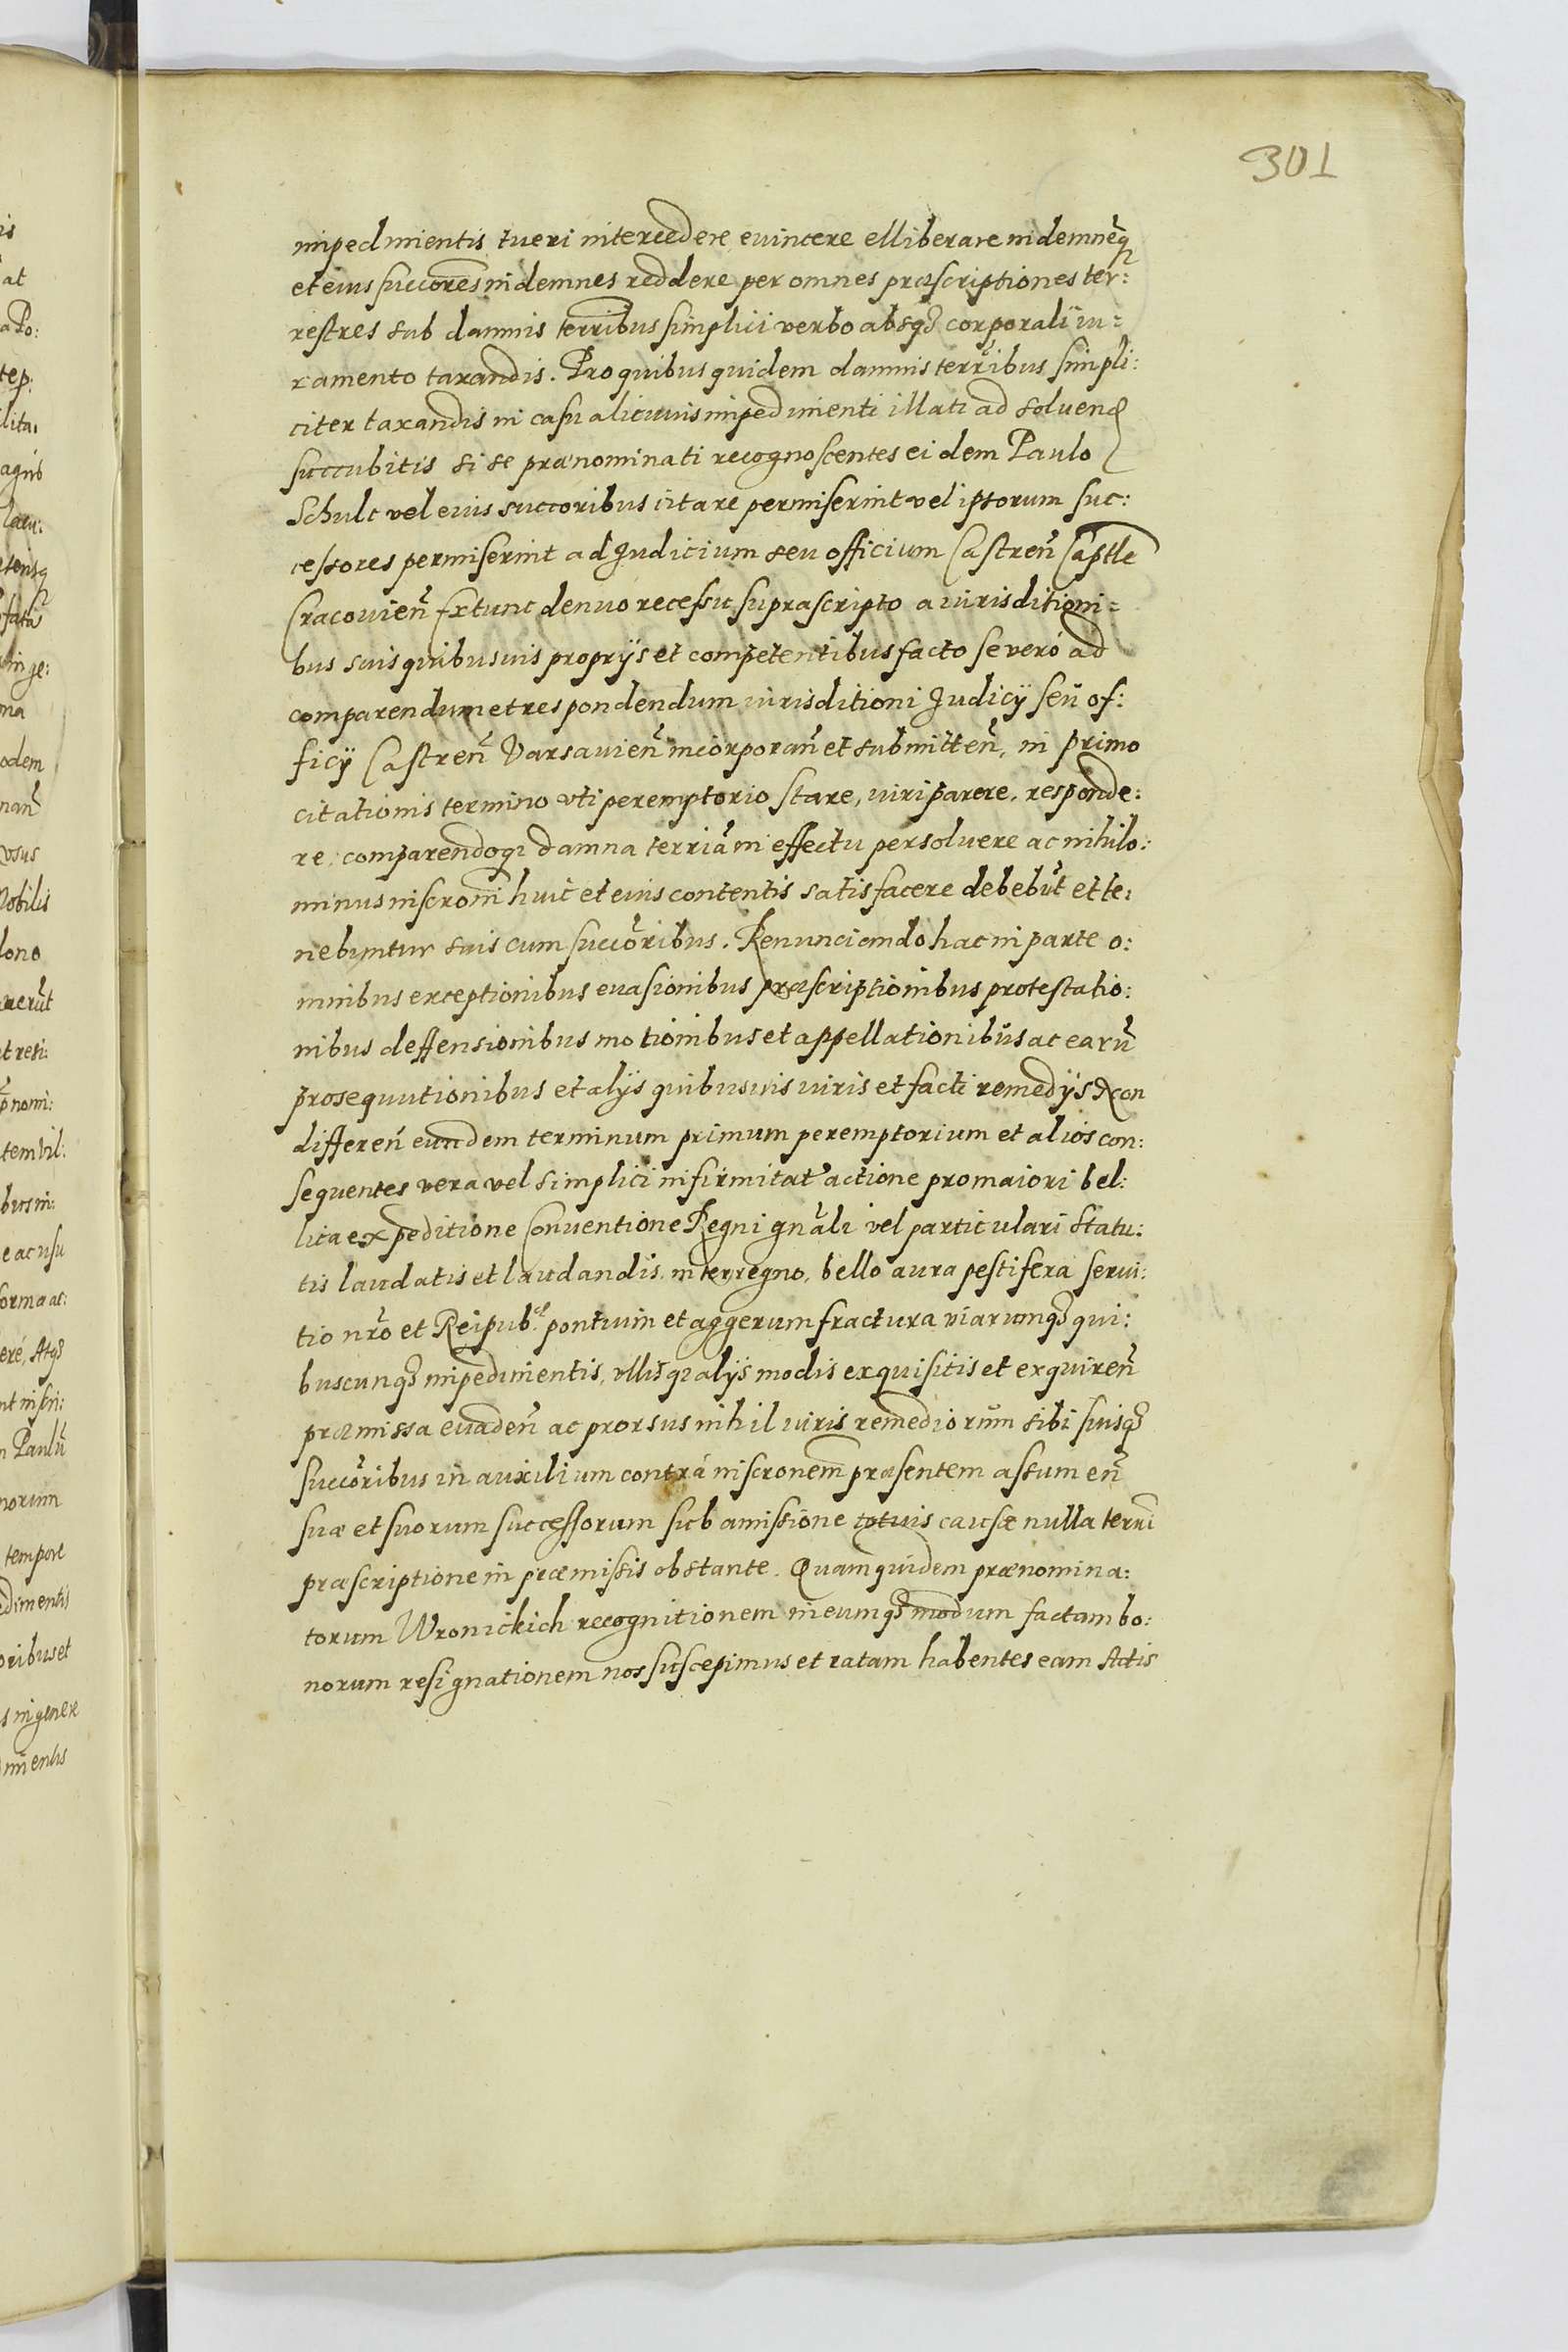 301
impedimentis tueri intercedere euincere elliberare indemnẽq
et eius succores indemnes reddere per omnes præscriptiones ter:
restres sub damnis terribus simplici verbo absq; corporali iu=
ramento taxandis. Pro quibus quidem damnis terribus simpli:
citer taxandis in casu alicuius impedimenti illati ad soluend
succubitis si se prænominati recognoscentes eidem Paulo
Schulc vel eius succoribus citare permiserint vel ipsorum suc:
cessores permiserint ad Judicium seu officium Castren̄ Captle
Cracouien̄ Extunc denuo recessu suprascripto a iurisditioni=
bus suis quibusuis proprijs et competentibus facto se veró ad
comparendum et respondendum iurisditioni Judicij seu of:
ficij Castren̄ Varsauien̄ incorporan̄ et submitten̄, in primo
citationis termino vti peremptorio stare, iuri parere, responde:
re, comparendoq; damna terria in effectu persoluere ac nihilo:
minus inscroni huic et eius contentis satisfacere debebūt et te:
nebuntur suis cum succoribus. Renunciando hac in parte o:
mnibus exceptionibus euasionibus præscriptionibus protestatio:
nibus deffensionibus motionibus et appellationibus ac earū
prosequutionibus et alijs quibusuis iuris et facti remedijs Non
differen̄ eundem terminum primum peremptorium et alios con:
sequentes vera vel simplici infirmitat actione pro maiori bel:
lica expeditione Conuentione Regni gnāli vel particulari statu:
tis laudatis et laudandis, interregno, bello aura pestifera serui:
tio nr̄o et Reipub. pontium et aggerum fractura viarumq; qui:
buscunq; impedimentis, vllisq; alijs modis exquisitis et exquiren̄
præmissa euaden̄ ac prorsus nihil iuris remediorum sibi suisq;
succoribus in auxilium contrá inscronem præsentem assumen̄
suæ et suorum successorum sub amissione totius causæ nulla terri
præscriptione in præmissis obstante. Quam quidem prænomina:
torum Wronickich recognitionem in eumq; modum factam bo:
norum resignationem nos suscepimus et ratam habentes eam Actis